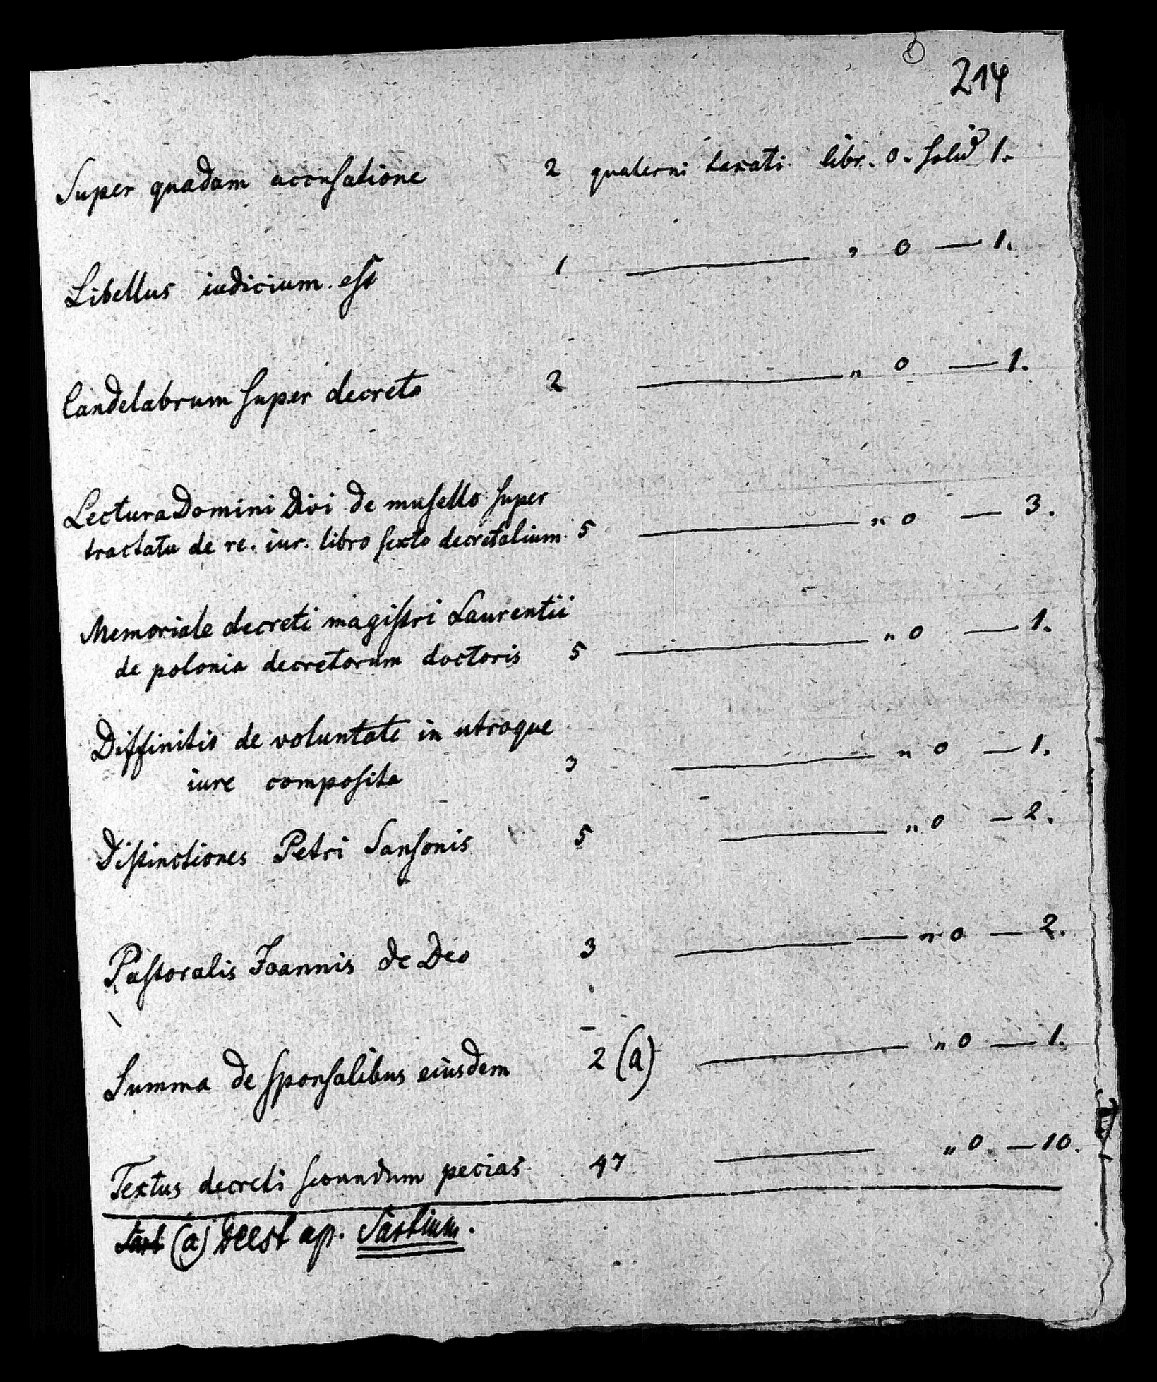 214
Super quadam accusatione 2 quaterni taxati libr. 0. solid 1.
Libellus iudicium est 1 — „ 0 — 1.
Candelabrum super decreto 2 — „ 0 — 1.
Lectura Domini Divi de musello super
tractatu de re. iur. libro sexto decretalium 5 — „ 0 — 3.
Memoriale decreti magistri Laurentii
de polonia decretorum doctoris 5 — „ 0 — 1.
Diffinitio de voluntate in utroque
iure composita 3 — „ 0 — 1.
Distinctiones Petri Sansonis 5 — „ 0 — 2.
Pastoralis Joannis de Deo 3 — „ 0 — 2.
Summa de sponsalibus eiusdem 2 (a) — „ 0 — 1.
Textus decreti secundum pecias 47 — „ 0 — 10.
(a) Deest ap. Sartium.